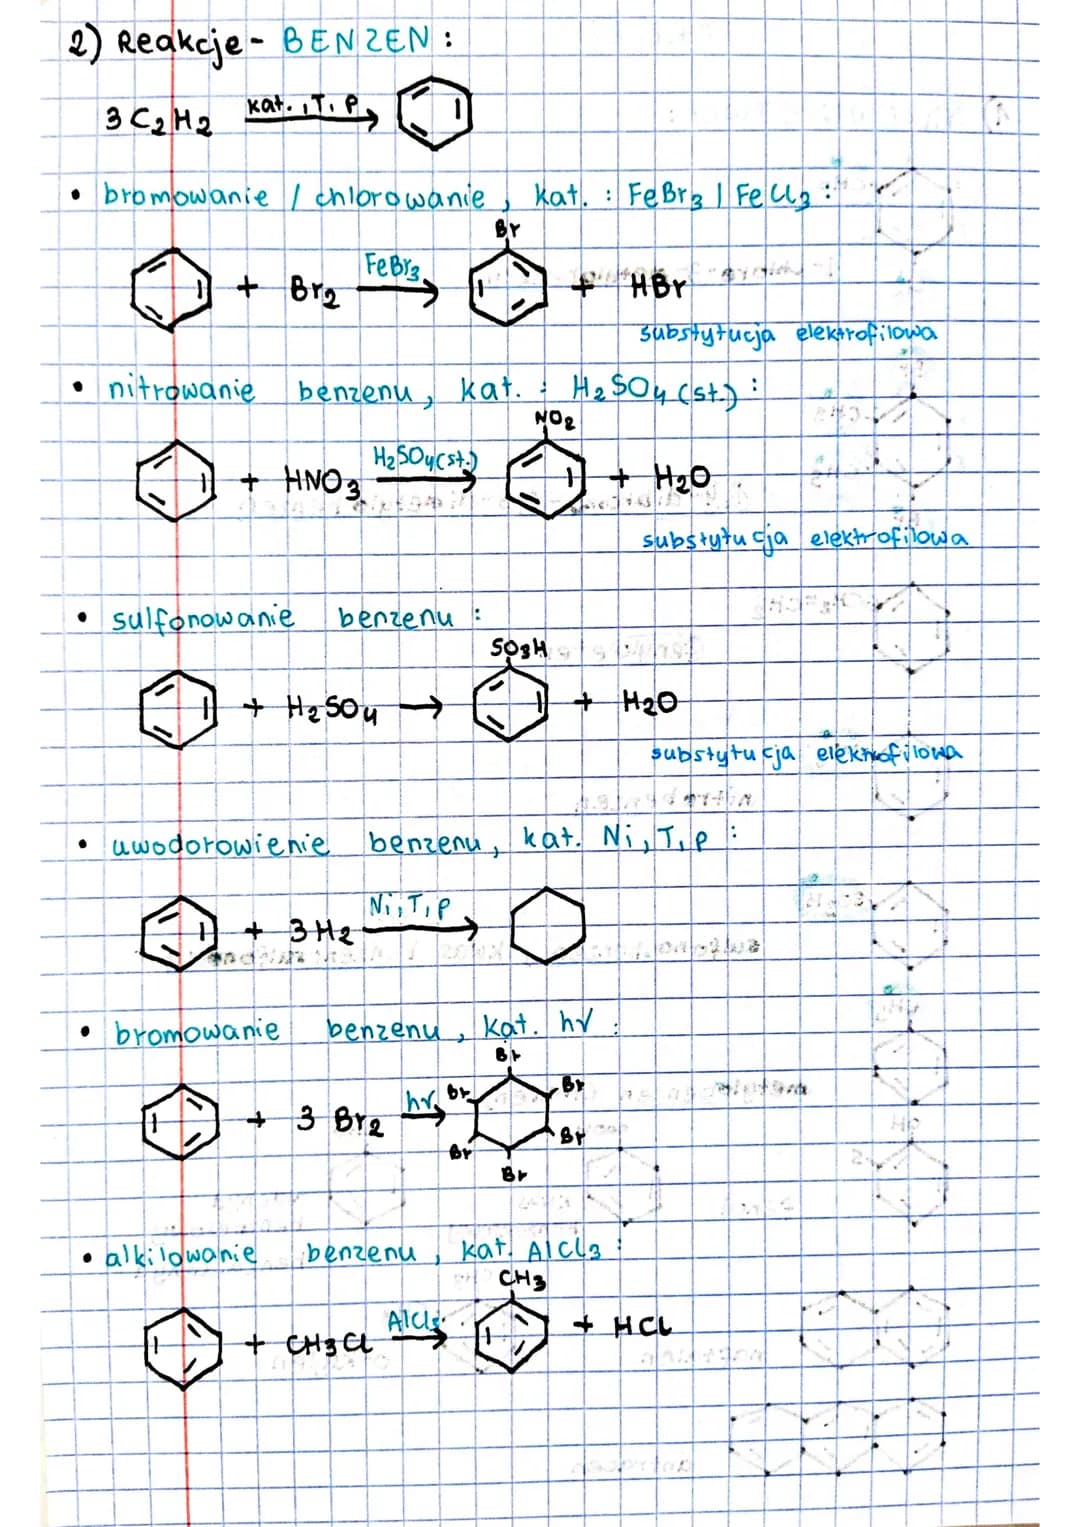 2) Reakcje - BENZEN :
3 C2H2 kat., T, p
• bromowanie / chlorowanie, kat. : FeBr3 | FeCl3 :
Br
+ Br2 FeBr3 + HBr
substytucja elektrofilowa
• nitrowanie benzenu, kat. : H2SO4 (st.) :
NO2
+ HNO3 H2SO4(st.) + H2O
substytucja elektrofilowa
• sulfonowanie benzenu :
SO3H
+ H2SO4 → + H2O
substytucja elektrofilowa
• uwodorowienie benzenu, kat. Ni, T, p :
+ 3 H2 Ni, T, p
• bromowanie benzenu, kat. hν :
Br
Br Br
+ 3 Br2 hν
Br Br
Br
• alkilowanie benzenu, kat. AlCl3 :
CH3
+ CH3Cl AlCl3 + HCl